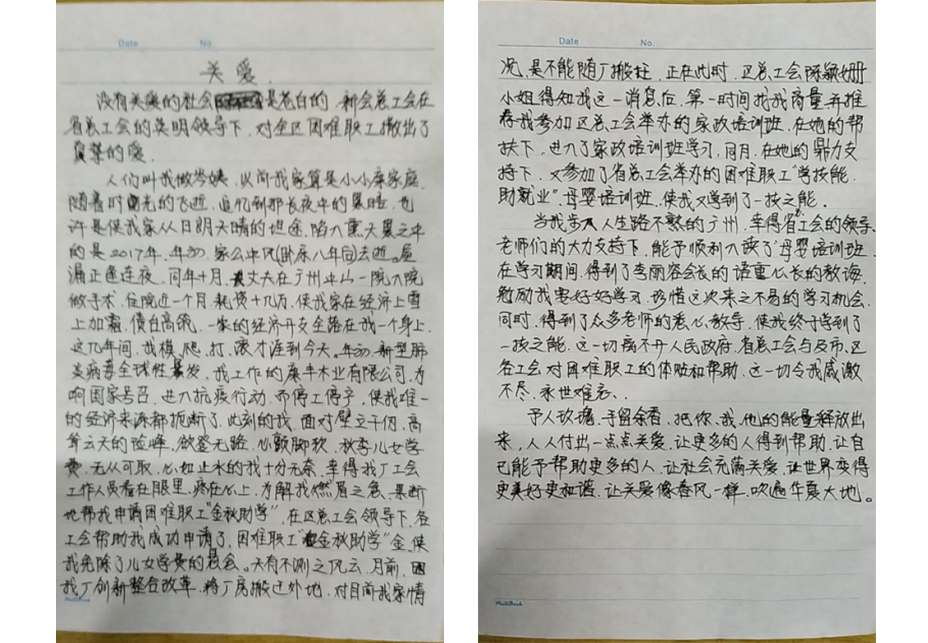 Date No
关爱
没有关爱的社会是苍白的，新会总工会在
省总工会的英明领导下，对全区困难职工撒出了
真挚的爱。
人们叫我做岑姨，以前我家算是小小康家庭，
随着时光的飞逝，追忆到那长夜中的黑暗，也
许是使我家从日朗天晴的坦途，陷入重天黑之中
的是2017年，年初，家公中风(卧床八年间)去逝。屋
漏正逢连夜，同年十月，丈夫在广州中山一院入院
做手术，住院近一个月，耗费十几万，使我家在经济上雪
上加霜，债台高筑，一家的经济开支全落在我一个身上，
这几年间，我模、爬、打、滚才涯到今天。年初，新型肺
炎病毒全球性暴发，我工作的康丰木业有限公司，为
响国家号召，进入抗疫行动，而停工停子，使我难一
的经济来源都扼断了，此刻的我，面对壁立千仞，高
耸云天的险峰，欲登无路，心颤脚软，秋季儿女学
费，无从可取，心如止水的我十分无奈，幸得我厂工会
工作人员看在眼里，疼在心上，为解我燃眉之急，果断
地帮我申请困难职工"金秋助学"，在区总工会领导下，各
工会帮助我成功申请了，困难职工"金秋助学"金，使
我免除了儿女学费的忌会。天有不测之风云，月前，因
我厂创新整合改革，将厂房搬迁外地，对目前我家情
Date No.
况，是不能随厂搬往，正在此时，区总工会陈颖姗
小姐得知我这一消息后，第一时间找我商量并推
荐我参加区总工会举办的家政培训班，在她的帮
扶下，进入了家政培训班学习，同月，在她的鼎力支
持下，又参加了省总工会举办的困难职工"学技能，
助就业"，母婴培训班，使我又学到了一技之能，
当我步入人生路不熟的广州，幸得省工会的领导、
老师们的大力支持下，能予顺利入读了"母婴培训班，
在学习期间，得到了李丽容会长的语重心长的教诲，
勉励我要好好学习，珍惜这次来之不易的学习机会，
同时，得到了众多老师的悉心教导，使我终于学到了
一技之能，这一切离不开人民政府，省总工会与及市、区
各工会对困难职工的体贴和帮助，这一切令我感激
不尽，永世难忘、
予人玫瑰，手留余香，把你、我、他的能量释放出
来，人人付出一点点关爱，让更多的人得到帮助，让自
已能予帮助更多的人，让社会充满关爱，让世界变得
更美好更和谐，让关爱像春风一样，吹遍华夏大地。